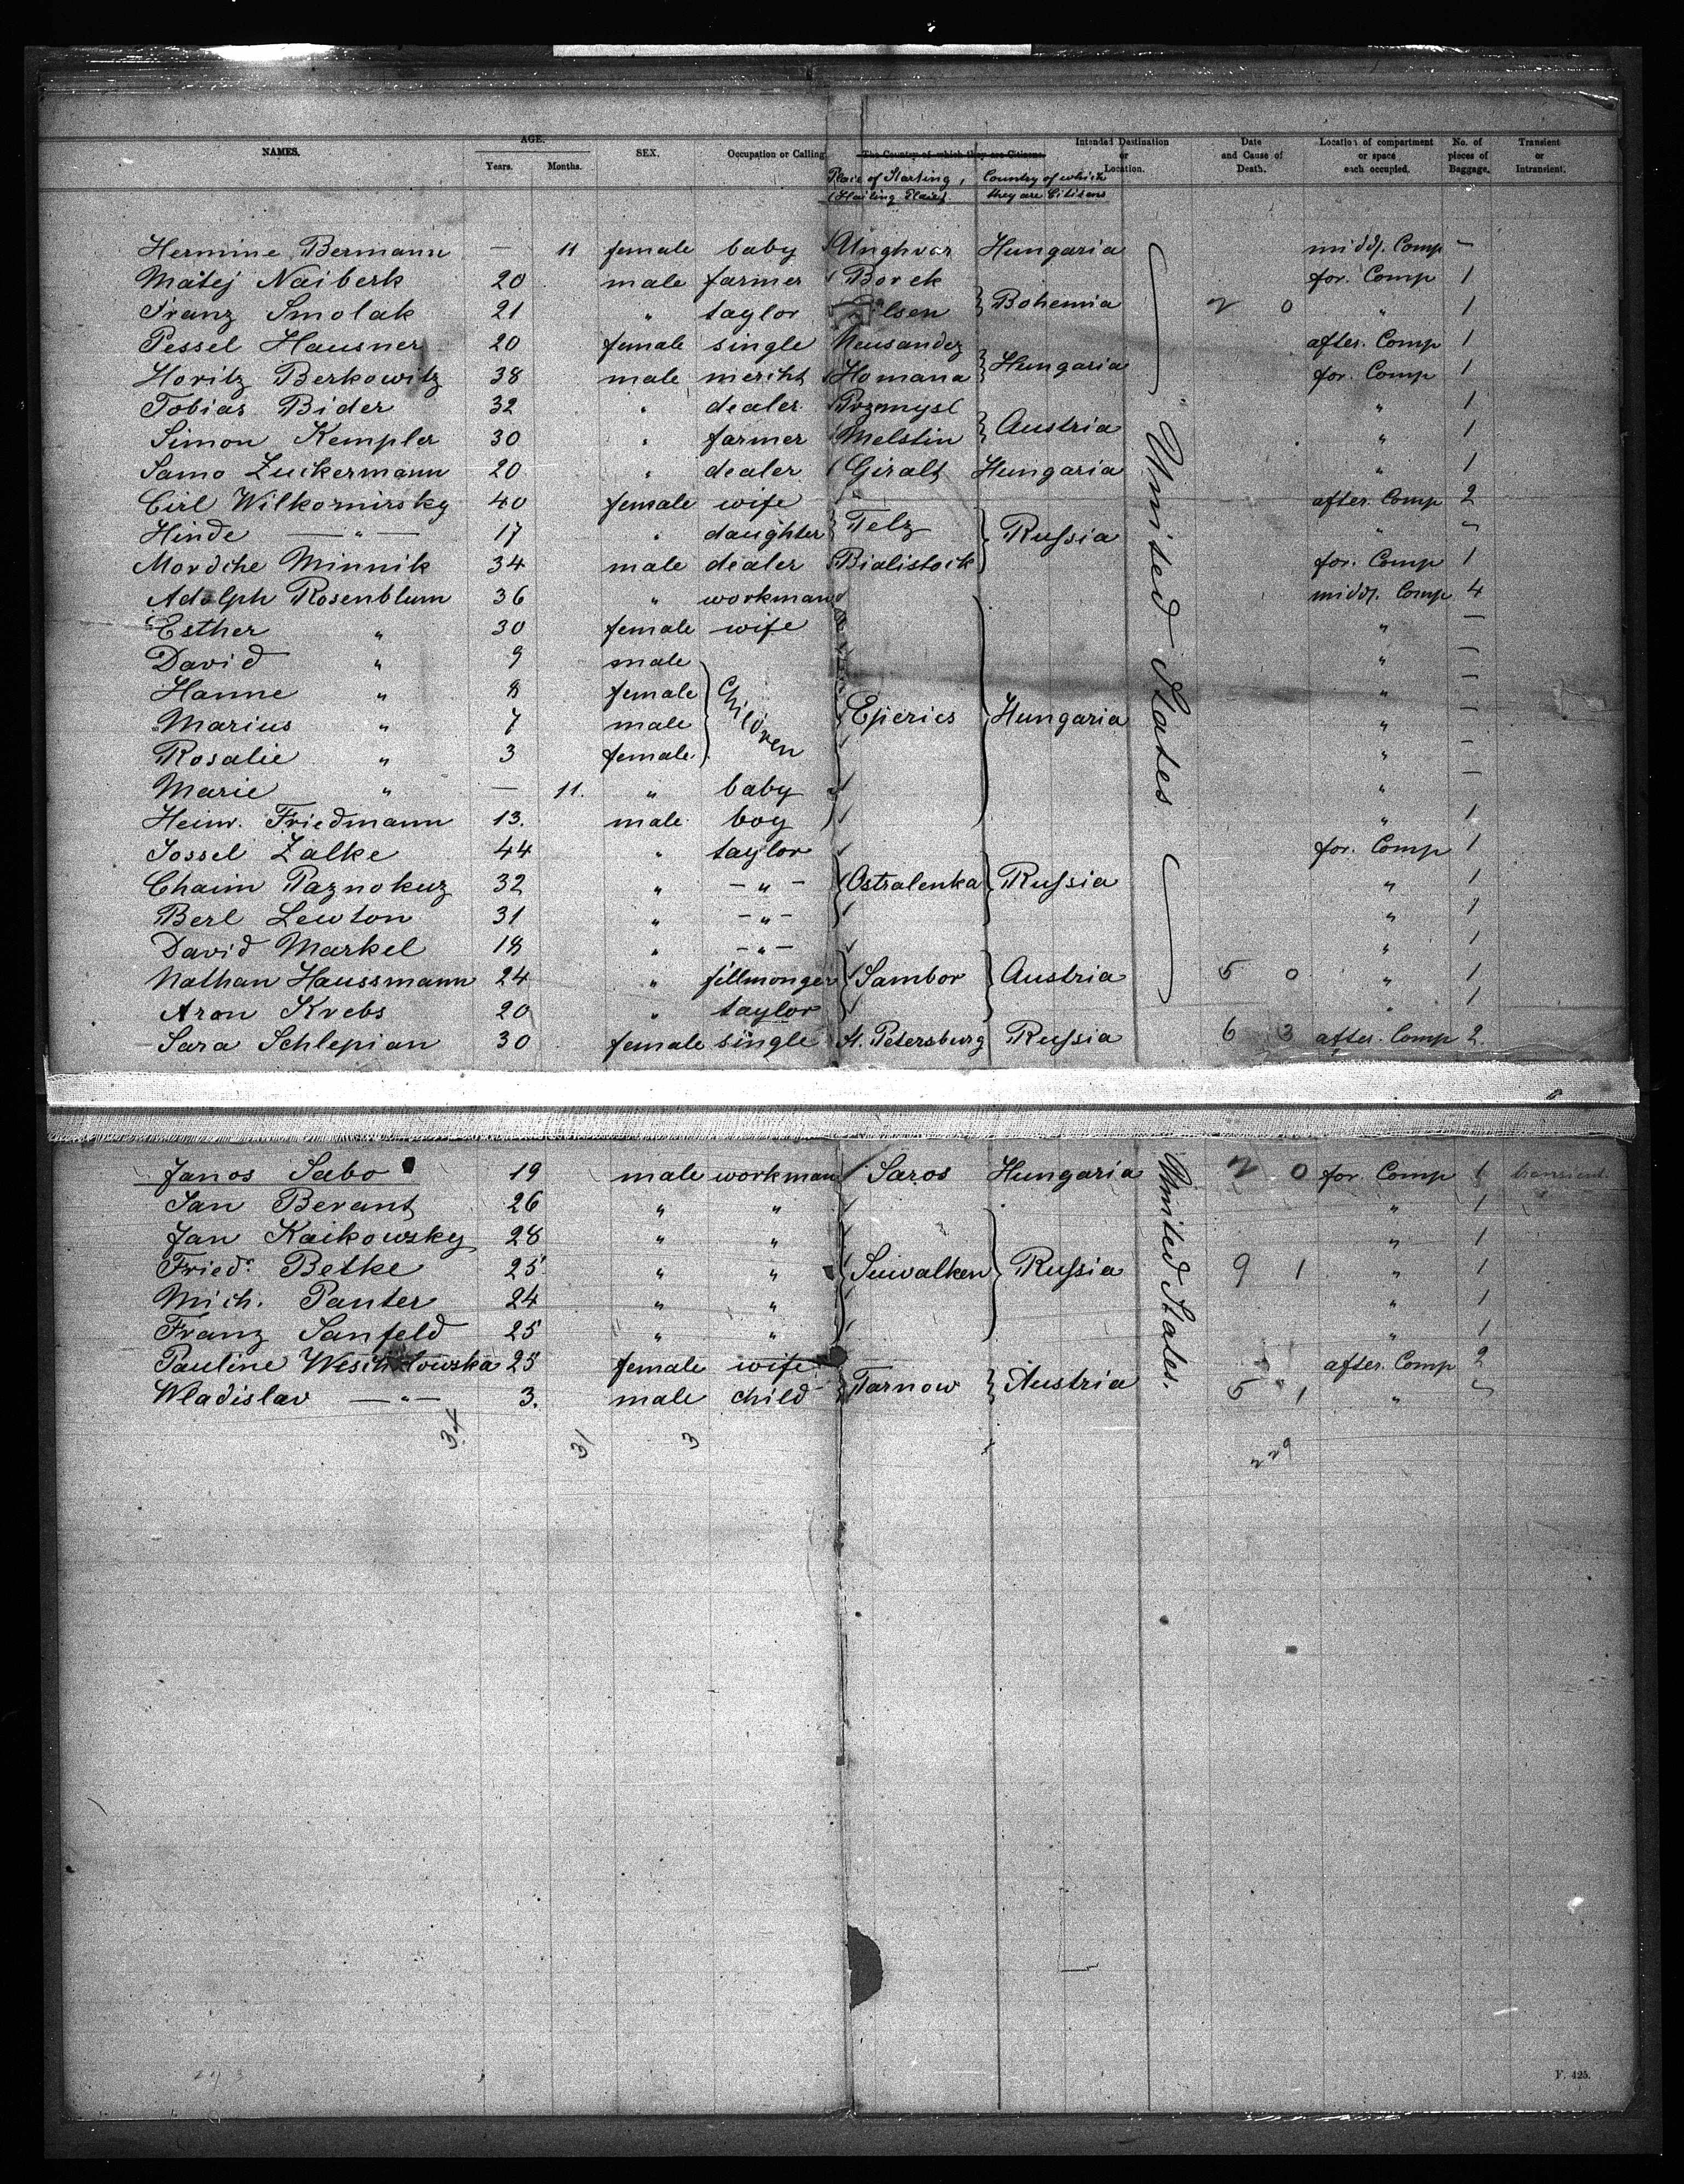 NAMES. AGE. Years. Months. SEX. Occupation or Calling The Country of which they are Citizens. Intended Destination or Location. Date and Cause of Death. Location of compartment or space each occupied. No. of pieces of Baggage. Transient or Intransient.
Place of Starting, (Hailing Place) Country of which they are Citizens
Hermine Bermann — 11 female baby Unghvar Hungaria midd. Comp —
Matej Naiberk 20 male farmer Borek for. Comp 1
Franz Smolak 21 " taylor Pilsen Bohemia 2 0 " 1
Pessel Hausner 20 female single Neusandez after. Comp 1
Moritz Berkowitz 38 male mercht Homana Hungaria for. Comp 1
Tobias Bider 32 " dealer Przemysl " 1
Simon Kempler 30 " farmer Melstin Austria " 1
Samo Zuckermann 20 " dealer Giralt Hungaria " 1
Cirl Wilkomirsky 40 female wife after. Comp 2
Hinde — " — 17 " daughter Telz Russia " "
Mordche Minnik 34 male dealer Bialistock for. Comp 1
Adolph Rosenblum 36 " workman midd. Comp 4
Esther " 30 female wife " —
David " 9 male " —
Hanne " 8 female Children " —
Marius " 7 male Eperies Hungaria " —
Rosalie " 3 female " —
Marie " — 11. " baby " —
Heinr. Friedmann 13. male boy " 1
Jossel Zalke 44 " taylor for. Comp 1
Chaim Paznokuz 32 " — " — Ostralenka Russia " 1
Berl Lewton 31 " — " — " 1
David Markel 18 " — " — " 1
Nathan Haussmann 24 " fellmonger Sambor Austria 5 0 " 1
Aron Krebs 20 " taylor " 1
Sara Schlepian 30 female single St. Petersburg Russia 6 3 after. Comp 2.
United States
Janos Sabo 19 male workman Saros Hungaria 2 0 for. Comp 1 transient
Jan Berant 26 " " " 1
Jan Kaikowsky 28 " " " 1
Friedr. Betke 25 " " Suwalken Russia 9 1 " 1
Mich. Panter 24 " " " 1
Franz Sanfeld 25 " " " 1
Pauline 25 female wife after. Comp 2
Wladislav — " — 3. male child Tarnow Austria 5 1 "
United States.
34 31 3 229
F. 425.